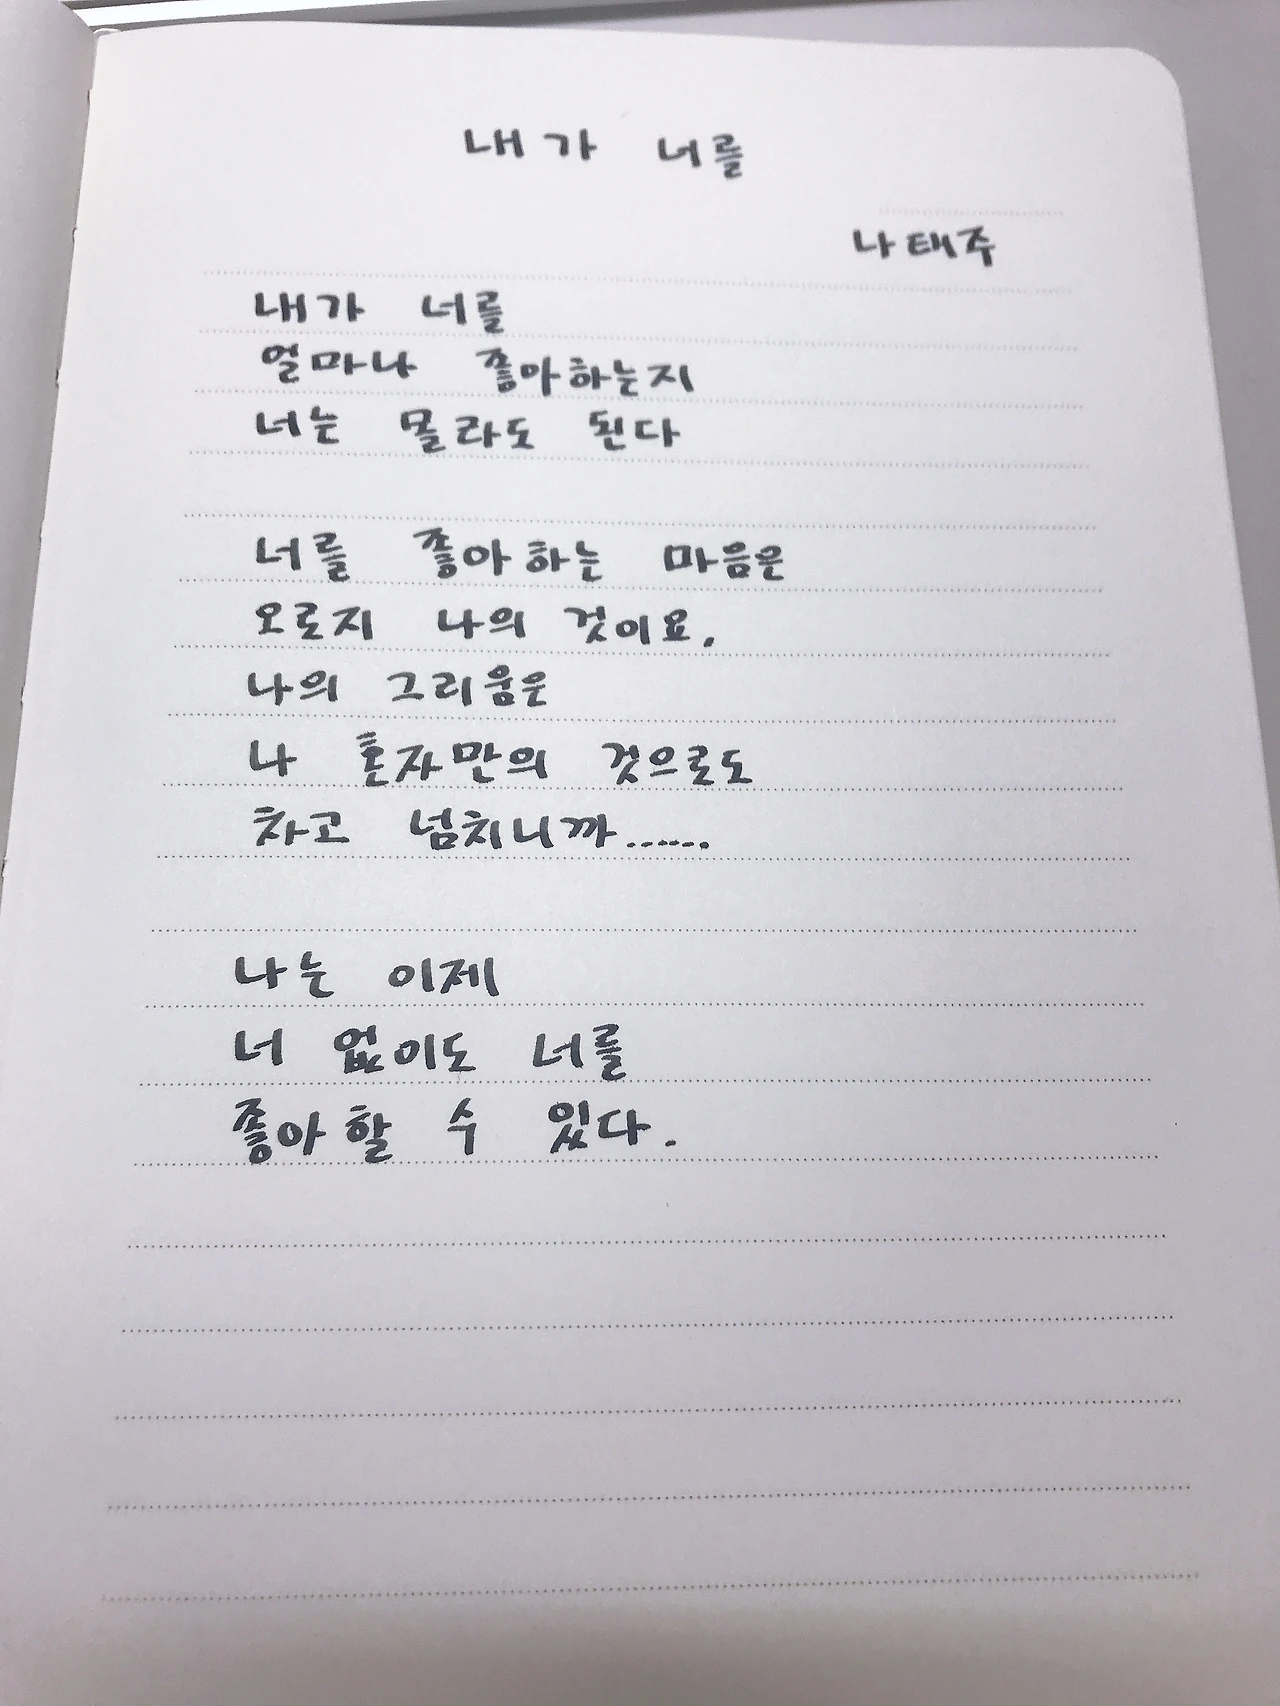 내가 너를
나태주
내가 너를
얼마나 좋아하는지
너는 몰라도 된다
너를 좋아하는 마음은
오로지 나의 것이요.
나의 그리움은
나 혼자만의 것으로도
차고 넘치니까......
나는 이제
너 없이도 너를
좋아할 수 있다.